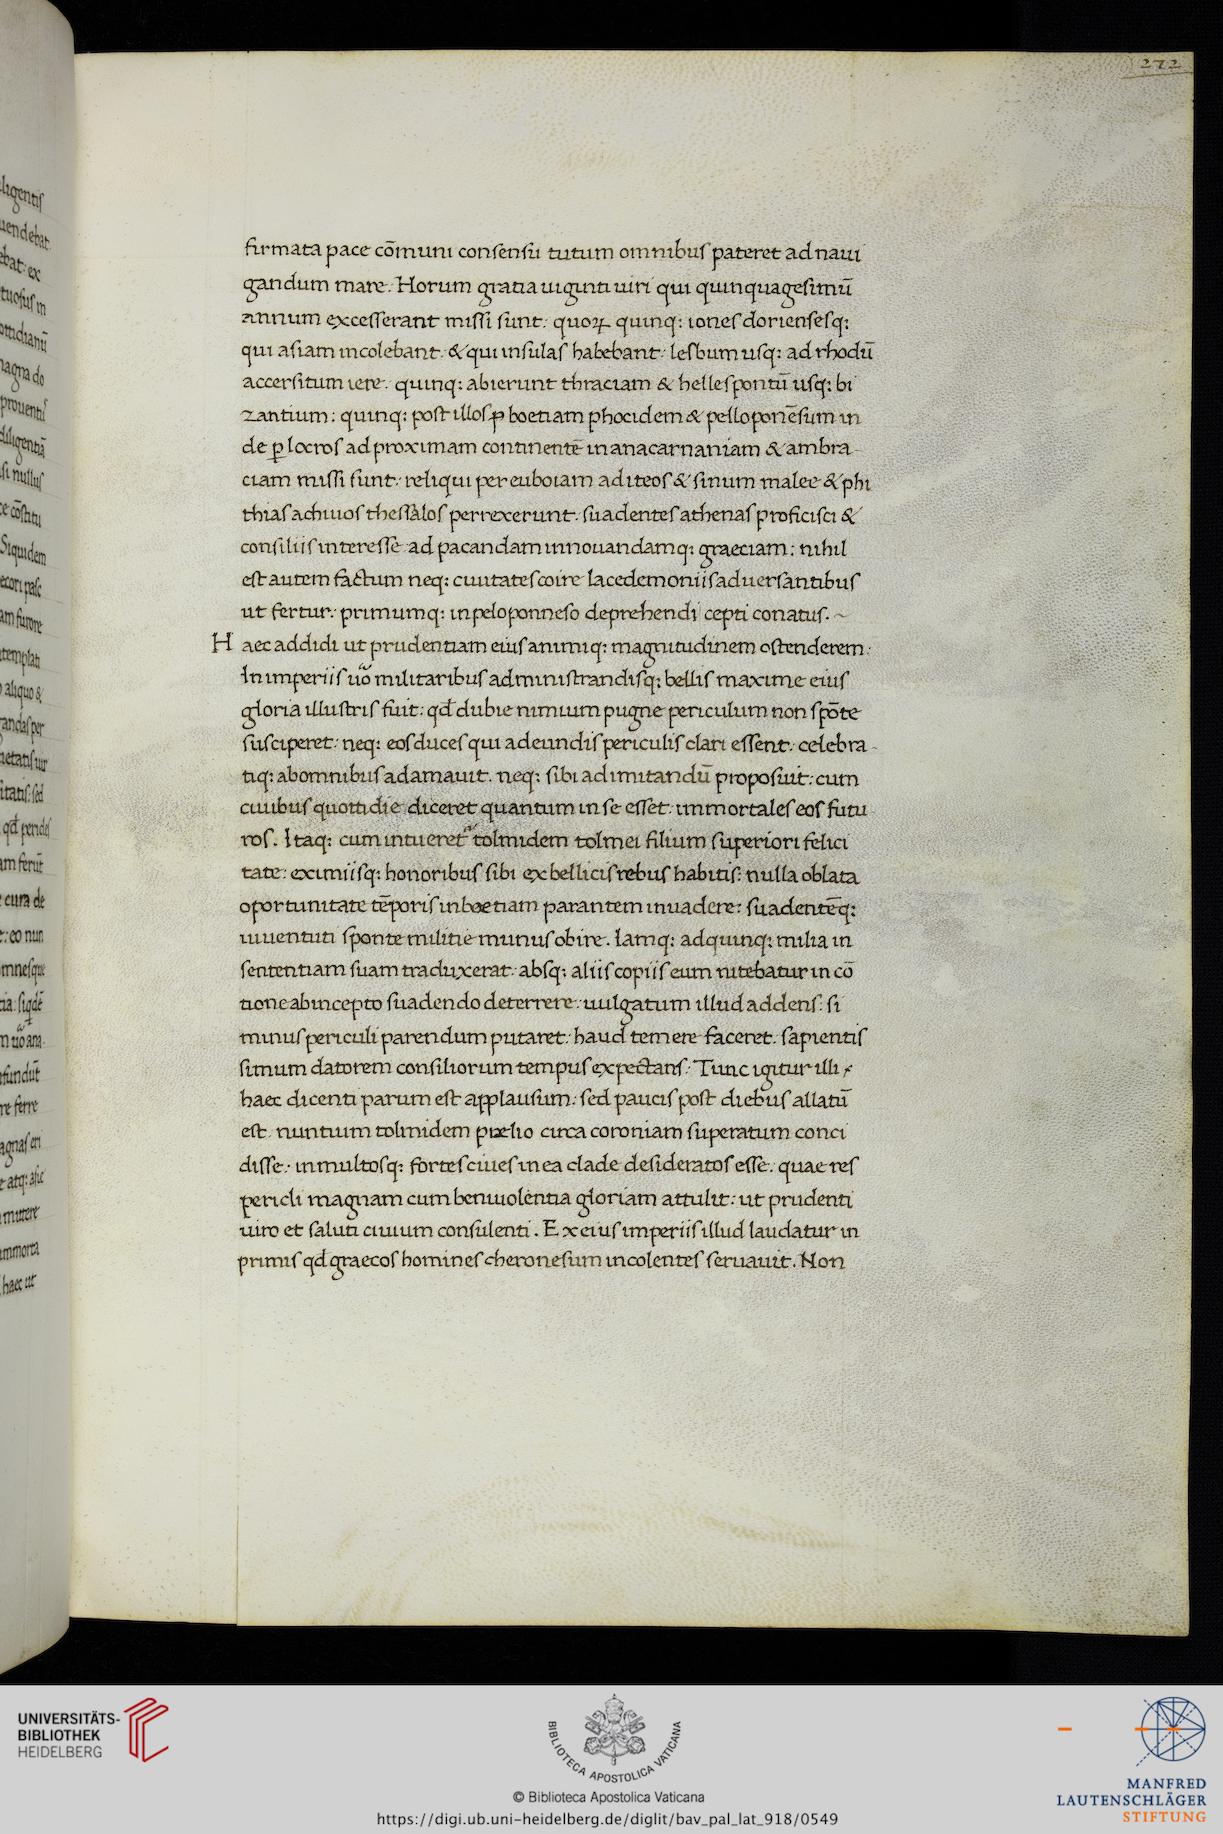 272
firmata pace cōmuni consensu tutum omnibus pateret ad naui
gandum mare. Horum gratia uiginti uiri qui quinquagesimū
annum excesserant missi sunt: quoꝝ quinq: iones doriensesq:
qui asiam incolebant. & qui insulas habebant: lesbum usq: ad rhodū
accersitum iere. quinq: abierunt thraciam & hellespontū usq: bi
zantium: quinq: post illos ꝓ boetiam phocidem & pelloponēsum in
de ꝑ locros ad proximam continentē in anacarnaniam & ambra
ciam missi sunt: reliqui per euboiam ad iteos & sinum malee & phi
thias achiuos thessalos perrexerunt: suadentes athenas proficisci &
consiliis interesse ad pacandam innouandamq: graeciam: nihil
est autem factum neq: ciuitates coire lacedemoniis aduersantibus
ut fertur: primumq: in peloponneso deprehendi cepti conatus. ~
Haec addidi ut prudentiam eius animiq: magnitudinem ostenderem:
In imperiis uō militaribus administrandisq: bellis maxime eius
gloria illustris fuit: qđ dubie nimium pugne periculum non spōte
susciperet: neq: eos duces qui adeundis periculis clari essent: celebra
tiq: ab omnibus adamauit. neq: sibi ad imitandū proposuit: cum
ciuibus quottidie diceret quantum in se esset: immortales eos futu
ros. Itaq: cum intueret᷑ tolmidem tolmei filium superiori felici
tate: eximiisq: honoribus sibi ex bellicis rebus habitis: nulla oblata
oportunitate tēporis in boetiam parantem inuadere: suadentēq:
iuuentuti sponte militie munus obire. Iamq: ad quinq: milia in
sententiam suam traduxerat: absq: aliis copiis eum nitebatur in cō
tione ab incepto suadendo deterrere: uulgatum illud addens: si
minus periculi parendum putaret: haud temere faceret: sapientis
simum datorem consiliorum tempus expectans: Tunc igitur illi
haec dicenti parum est applausum: sed paucis post diebus allatū
est nuntium tolmidem prelio circa coroniam superatum conci
disse: in multosq: fortes ciues in ea clade desideratos esse: quae res
pericli magnam cum beniuolentia gloriam attulit: ut prudenti
uiro et saluti ciuium consulenti. Ex eius imperiis illud laudatur in
primis qđ graecos homines cheronesum incolentes seruauit. Non
UNIVERSITÄTS-
BIBLIOTHEK
HEIDELBERG
BIBLIOTECA APOSTOLICA VATICANA
© Biblioteca Apostolica Vaticana
https://digi.ub.uni-heidelberg.de/diglit/bav_pal_lat_918/0549
MANFRED
LAUTENSCHLÄGER
STIFTUNG